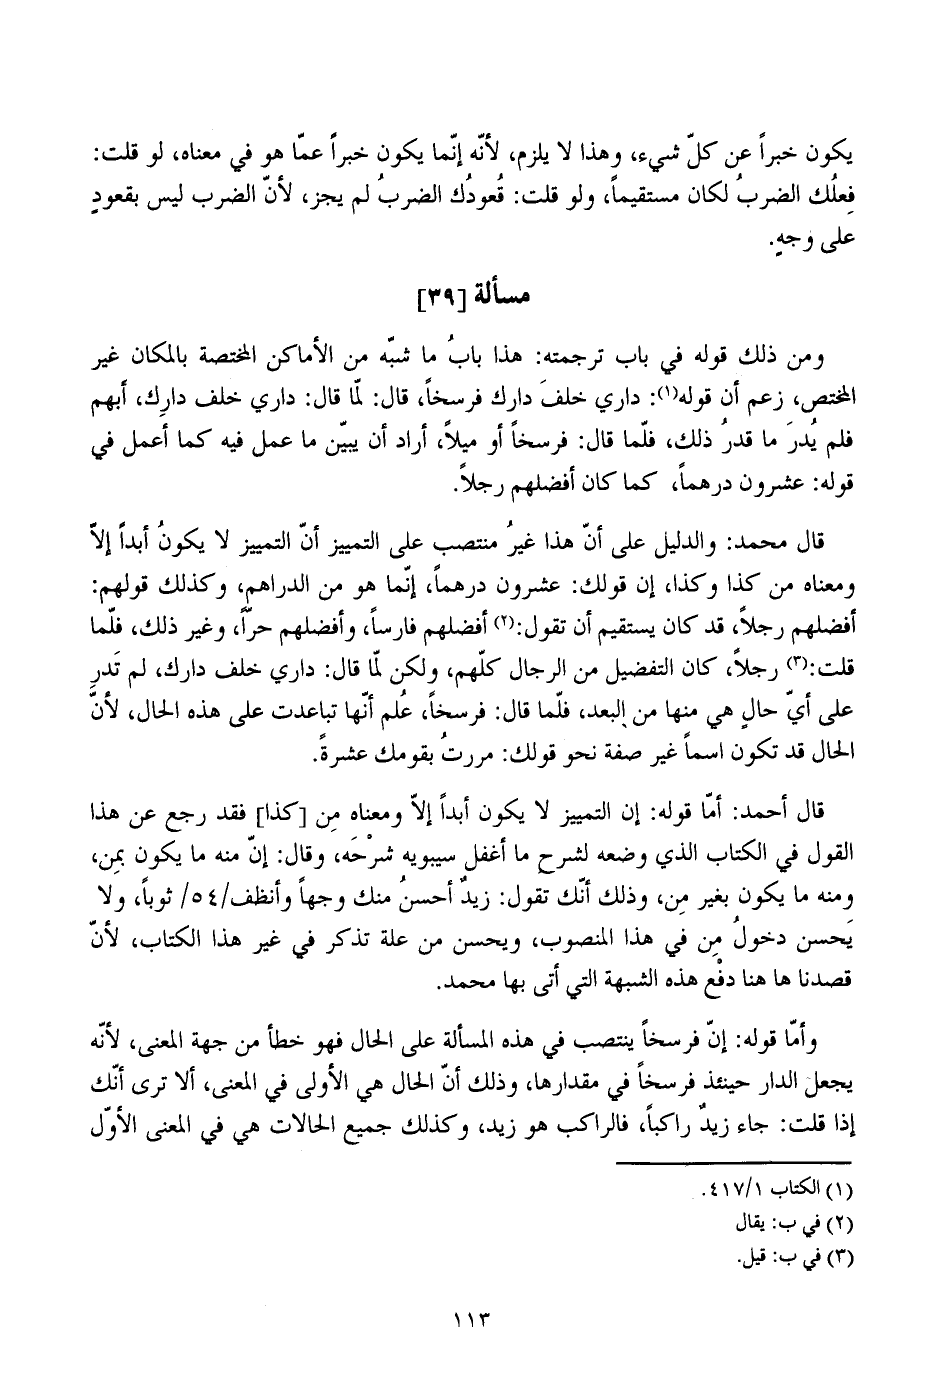 يكون خبراً عن كلّ شيء، وهذا لا يلزم، لأنّه إنّما يكون خبراً عمّا هو في معناه، لو قلت:
فِعلُك الضربُ لكان مستقيماً، ولو قلت: قُعودُك الضربُ لم يجز، لأنّ الضرب ليس بقعودٍ
على وَجهٍ.
مسألة [٣٩]
ومن ذلك قوله في باب ترجمته: هذا بابُ ما شبّه من الأماكن المختصة بالمكان غير
المختص، زعم أن قوله(١): داري خلفَ دارك فرسخاً، قال: لمّا قال: داري خلف دارِك، أبهم
فلم يُدرَ ما قدرُ ذلك، فلّما قال: فرسخاً أو ميلاً، أراد أن يبيّن ما عمل فيه كما أعمل في
قوله: عشرون درهماً، كما كان أفضلهم رجلاً.
قال محمد: والدليل على أنّ هذا غيرُ منتصب على التمييز أنّ التمييز لا يكونُ أبداً إلاّ
ومعناه من كذا وكذا، إن قولك: عشرون درهماً، إنّما هو من الدراهم، وكذلك قولهم:
أفضلهم رجلاً، قد كان يستقيم أن تقول:(٢) أفضلهم فارساً، وأفضلهم حرّاً، وغير ذلك، فلّما
قلت:(٣) رجلاً، كان التفضيل من الرجال كلّهم، ولكن لمّا قال: داري خلف دارك، لم تَدرِ
على أيّ حالٍ هي منها من البعد، فلّما قال: فرسخاً، عُلم أنّها تباعدت على هذه الحال، لأنّ
الحال قد تكون اسماً غير صفة نحو قولك: مررتُ بقومك عشرةً.
قال أحمد: أمّا قوله: إن التمييز لا يكون أبداً إلاّ ومعناه مِن [كذا] فقد رجع عن هذا
القول في الكتاب الذي وضعه لشرح ما أغفل سيبويه شرْحَه، وقال: إنّ منه ما يكون بمِن،
ومنه ما يكون بغير مِن، وذلك أنّك تقول: زيدٌ أحسنُ منك وجهاً وأنظف/٥٤/ ثوباً، ولا
يَحسن دخولُ مِن في هذا المنصوب، ويحسن من علة تذكر في غير هذا الكتاب، لأنّ
قصدنا ها هنا دفْع هذه الشبهة التي أتى بها محمد.
وأمّا قوله: إنّ فرسخاً ينتصب في هذه المسألة على الحال فهو خطأ من جهة المعنى، لأنّه
يجعل الدار حينئذ فرسخاً في مقدارها، وذلك أنّ الحال هي الأولى في المعنى، ألا ترى أنّك
إذا قلت: جاء زيدٌ راكباً، فالراكب هو زيد، وكذلك جميع الحالات هي في المعنى الأوّل
(١) الكتاب ٤١٧/١.
(٢) في ب: يقال
(٣) في ب: قيل.
١١٣